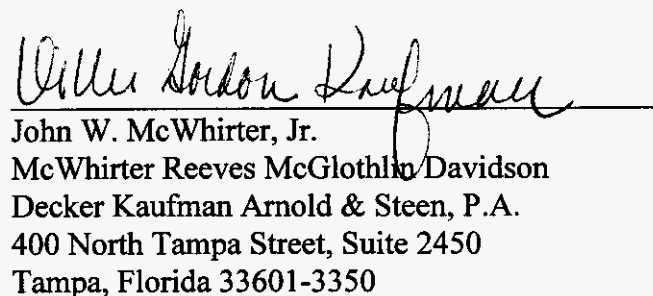 Gordon Kaufman
John W. McWhirter, Jr.
McWhirter Reeves McGlothlin Davidson
Decker Kaufman Arnold & Steen, P.A.
400 North Tampa Street, Suite 2450
Tampa, Florida 33601-3350